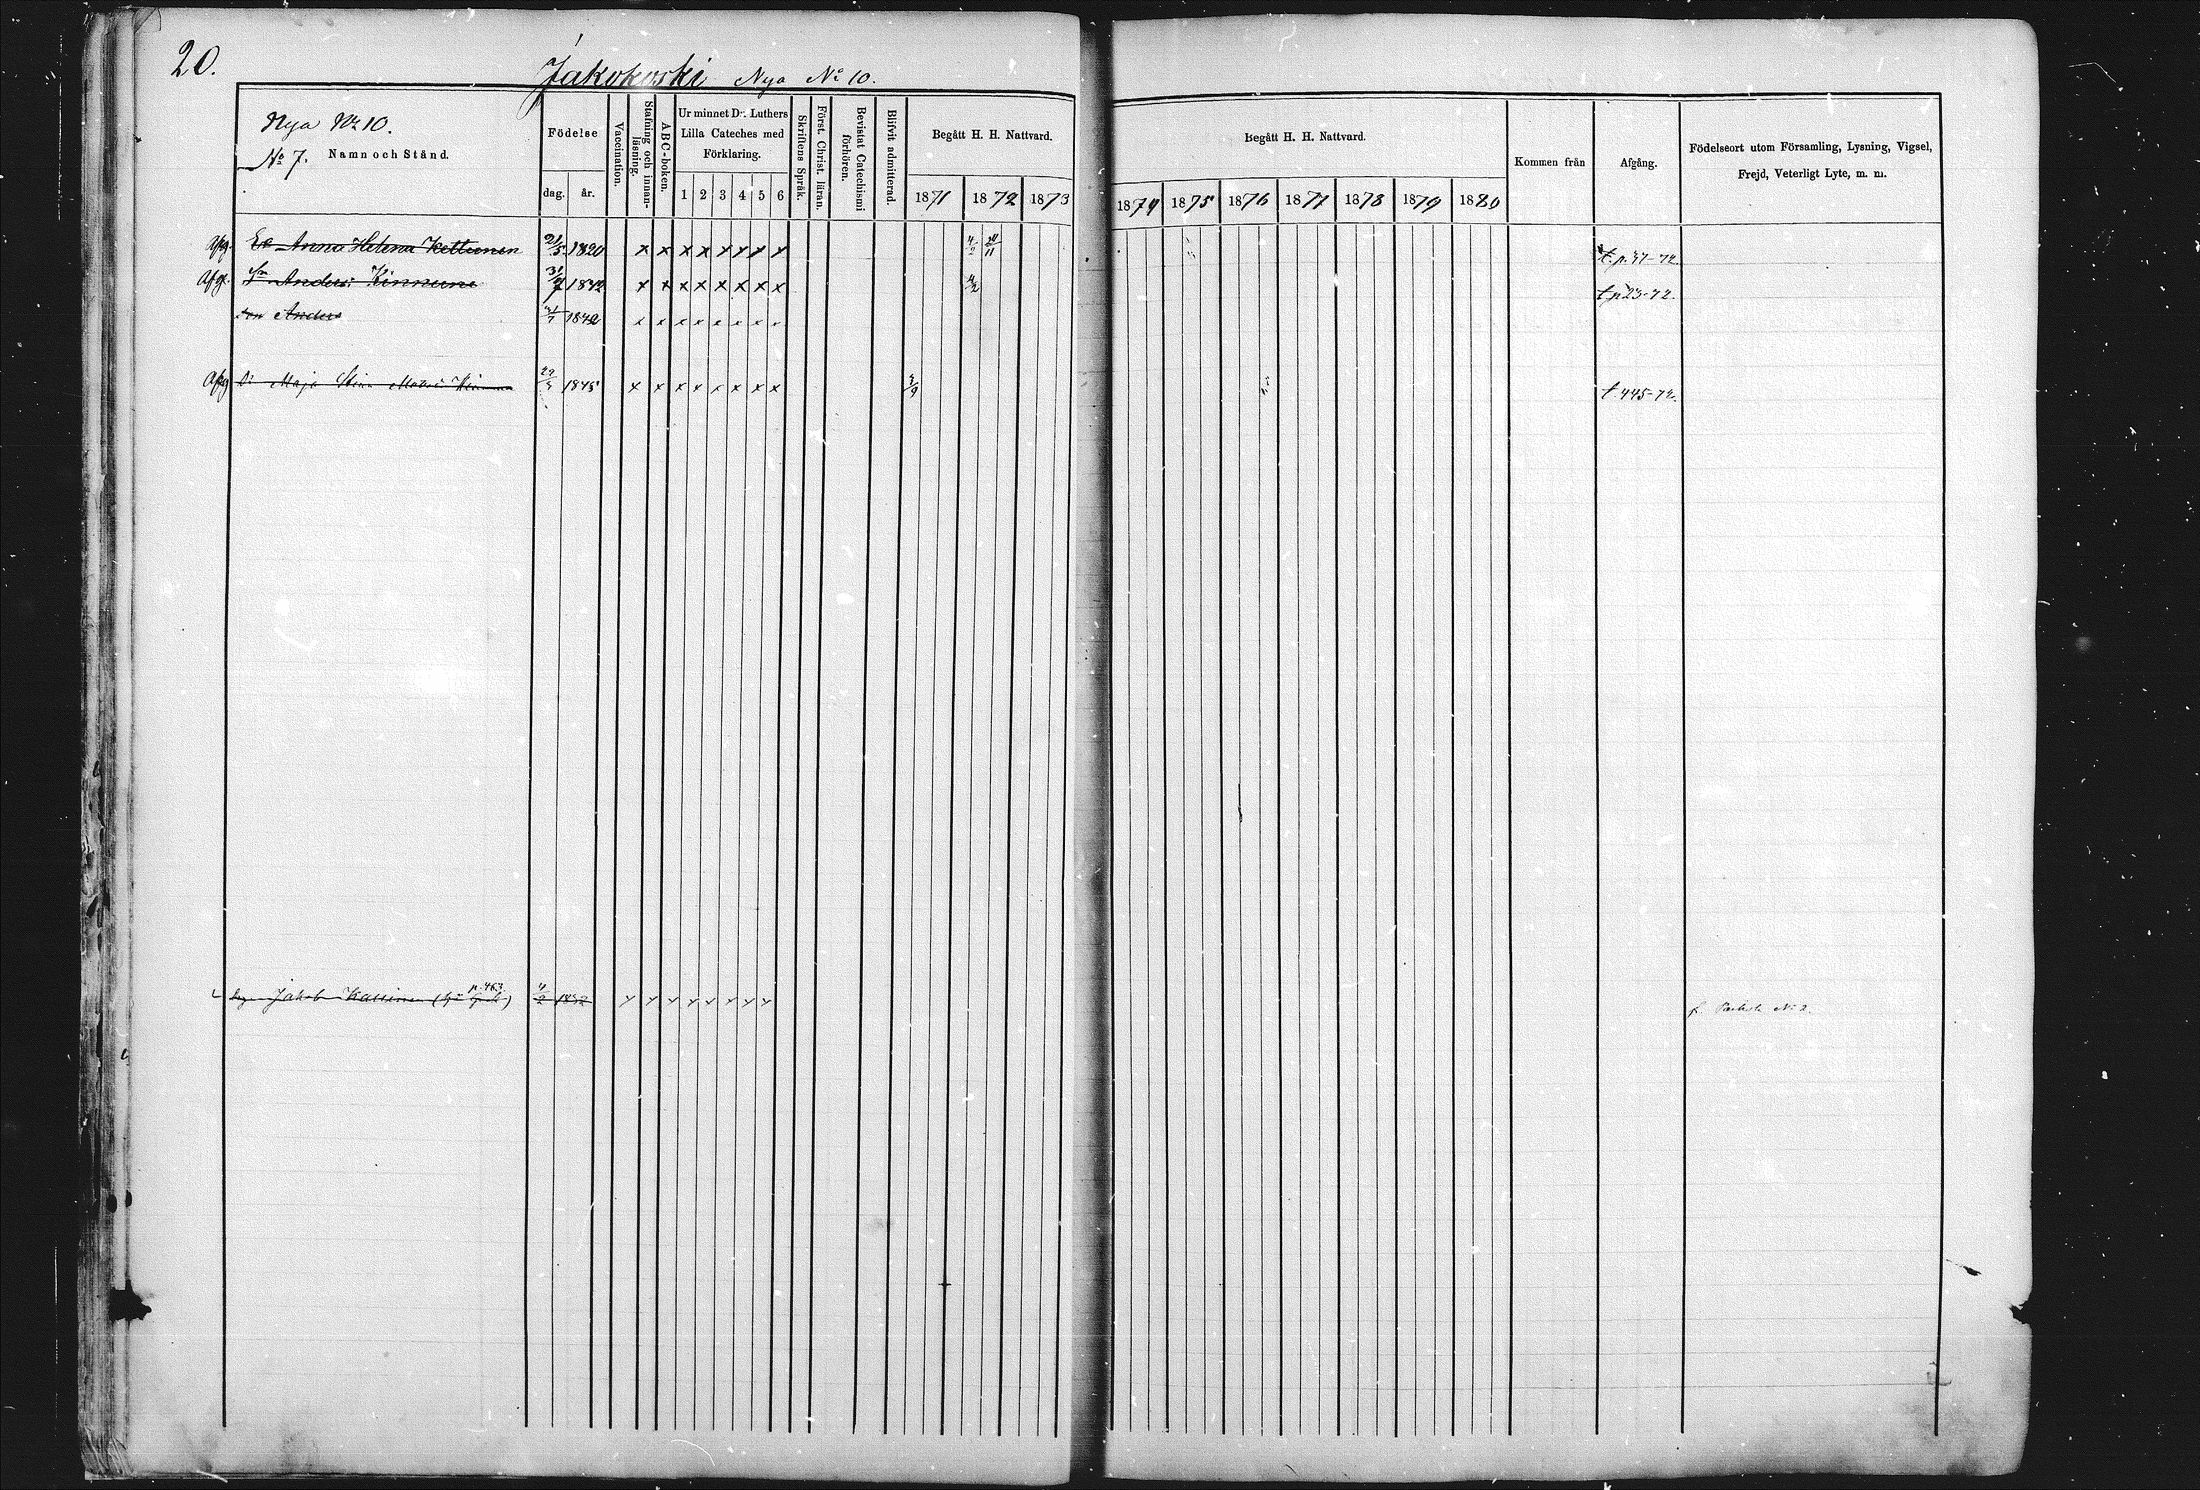 20.
Jakokoski Nya No 10.
Nya No 10.
No 7. Namn och Stånd.
Födelse
dag. år.
Vaccination.
Stafning och innanläsning.
ABC-boken.
Ur minnet Dr. Luthers Lilla Cateches med Förklaring.
1 2 3 4 5 6
Skriftens Språk.
Först. Christ. läran.
Bevistat Catechismi förhören.
Blifvit admitterad.
Begått H. H. Nattvard.
1871 1872 1873
Begått H. H. Nattvard.
1874 1875 1876 1877 1878 1879 1880
Kommen från
Afgång.
Födelseort utom Församling, Lysning, Vigsel, Frejd, Veterligt Lyte, m. m.
Afg. Anna Helena Kettunen 21/5 1820 x x x x x x x x 4/2 11 t. p. 47-72.
Afg. Anders Kinnune 31/7 1842 x x x x x x x x 4/2 t. p. 23-72.
son Anders 1842 x x x x x x x x
Afg. Maja Stina 29 1845 x x x x x x x x t. 445-72.
Jakob p. 463. 4/2 x x x x x x x x f. No 2.